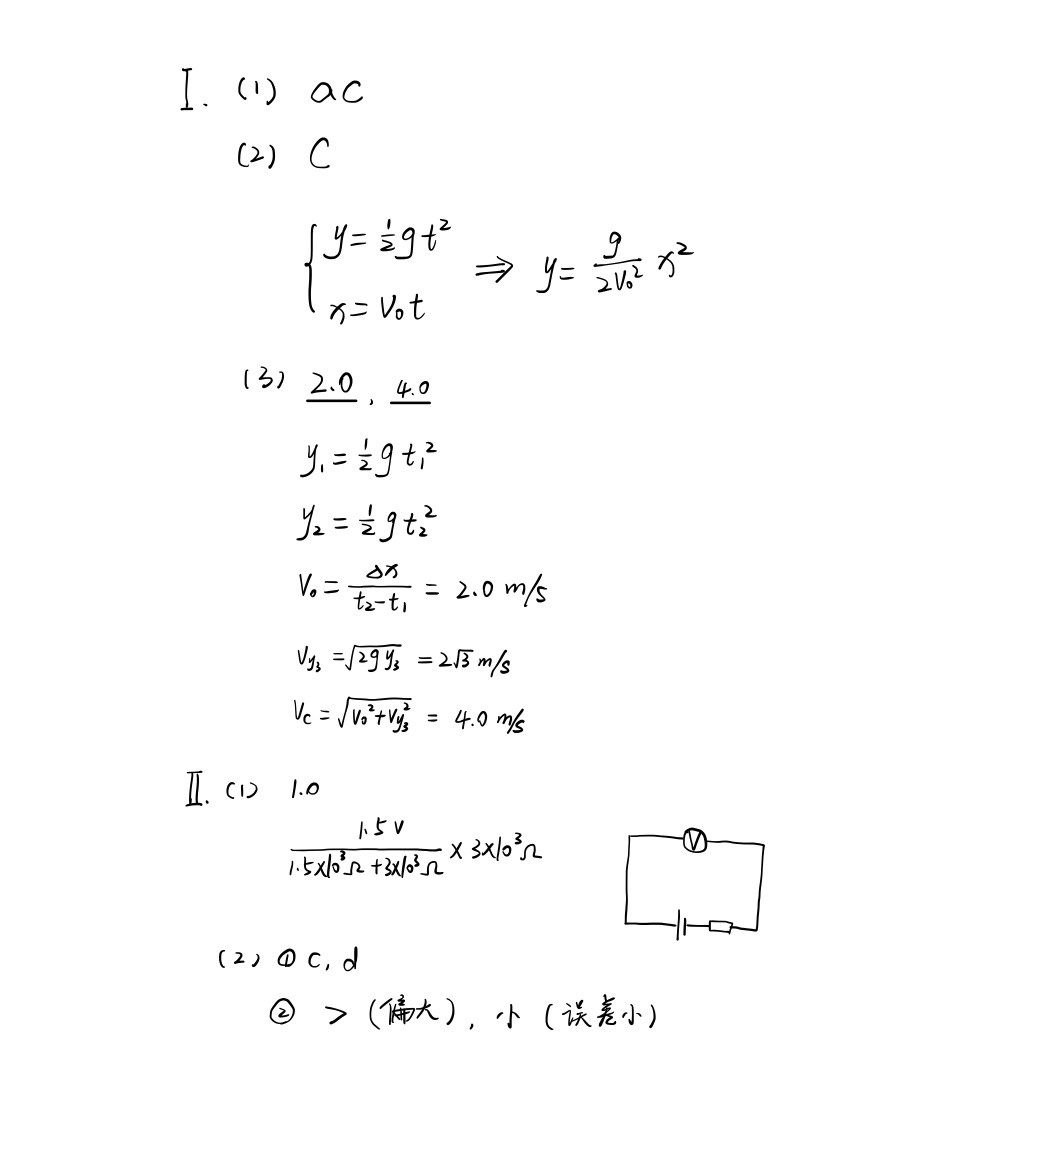 I. (1) ac
(2) C
{ y = 1/2 g t² x = v₀t ⇒ y = g/2v₀² x²
(3) 2.0 , 4.0
y₁ = 1/2 g t₁²
y₂ = 1/2 g t₂²
v₀ = Δx/t₂-t₁ = 2.0 m/s
Vy₃ = √2gy₃ = 2√3 m/s
Vc = √v₀²+vy₃² = 4.0 m/s
II. (1) 1.0
1.5V/1.5×10³Ω+3×10³Ω × 3×10³Ω
V
(2) ① c, d
② > (偏大), 小 (误差小)